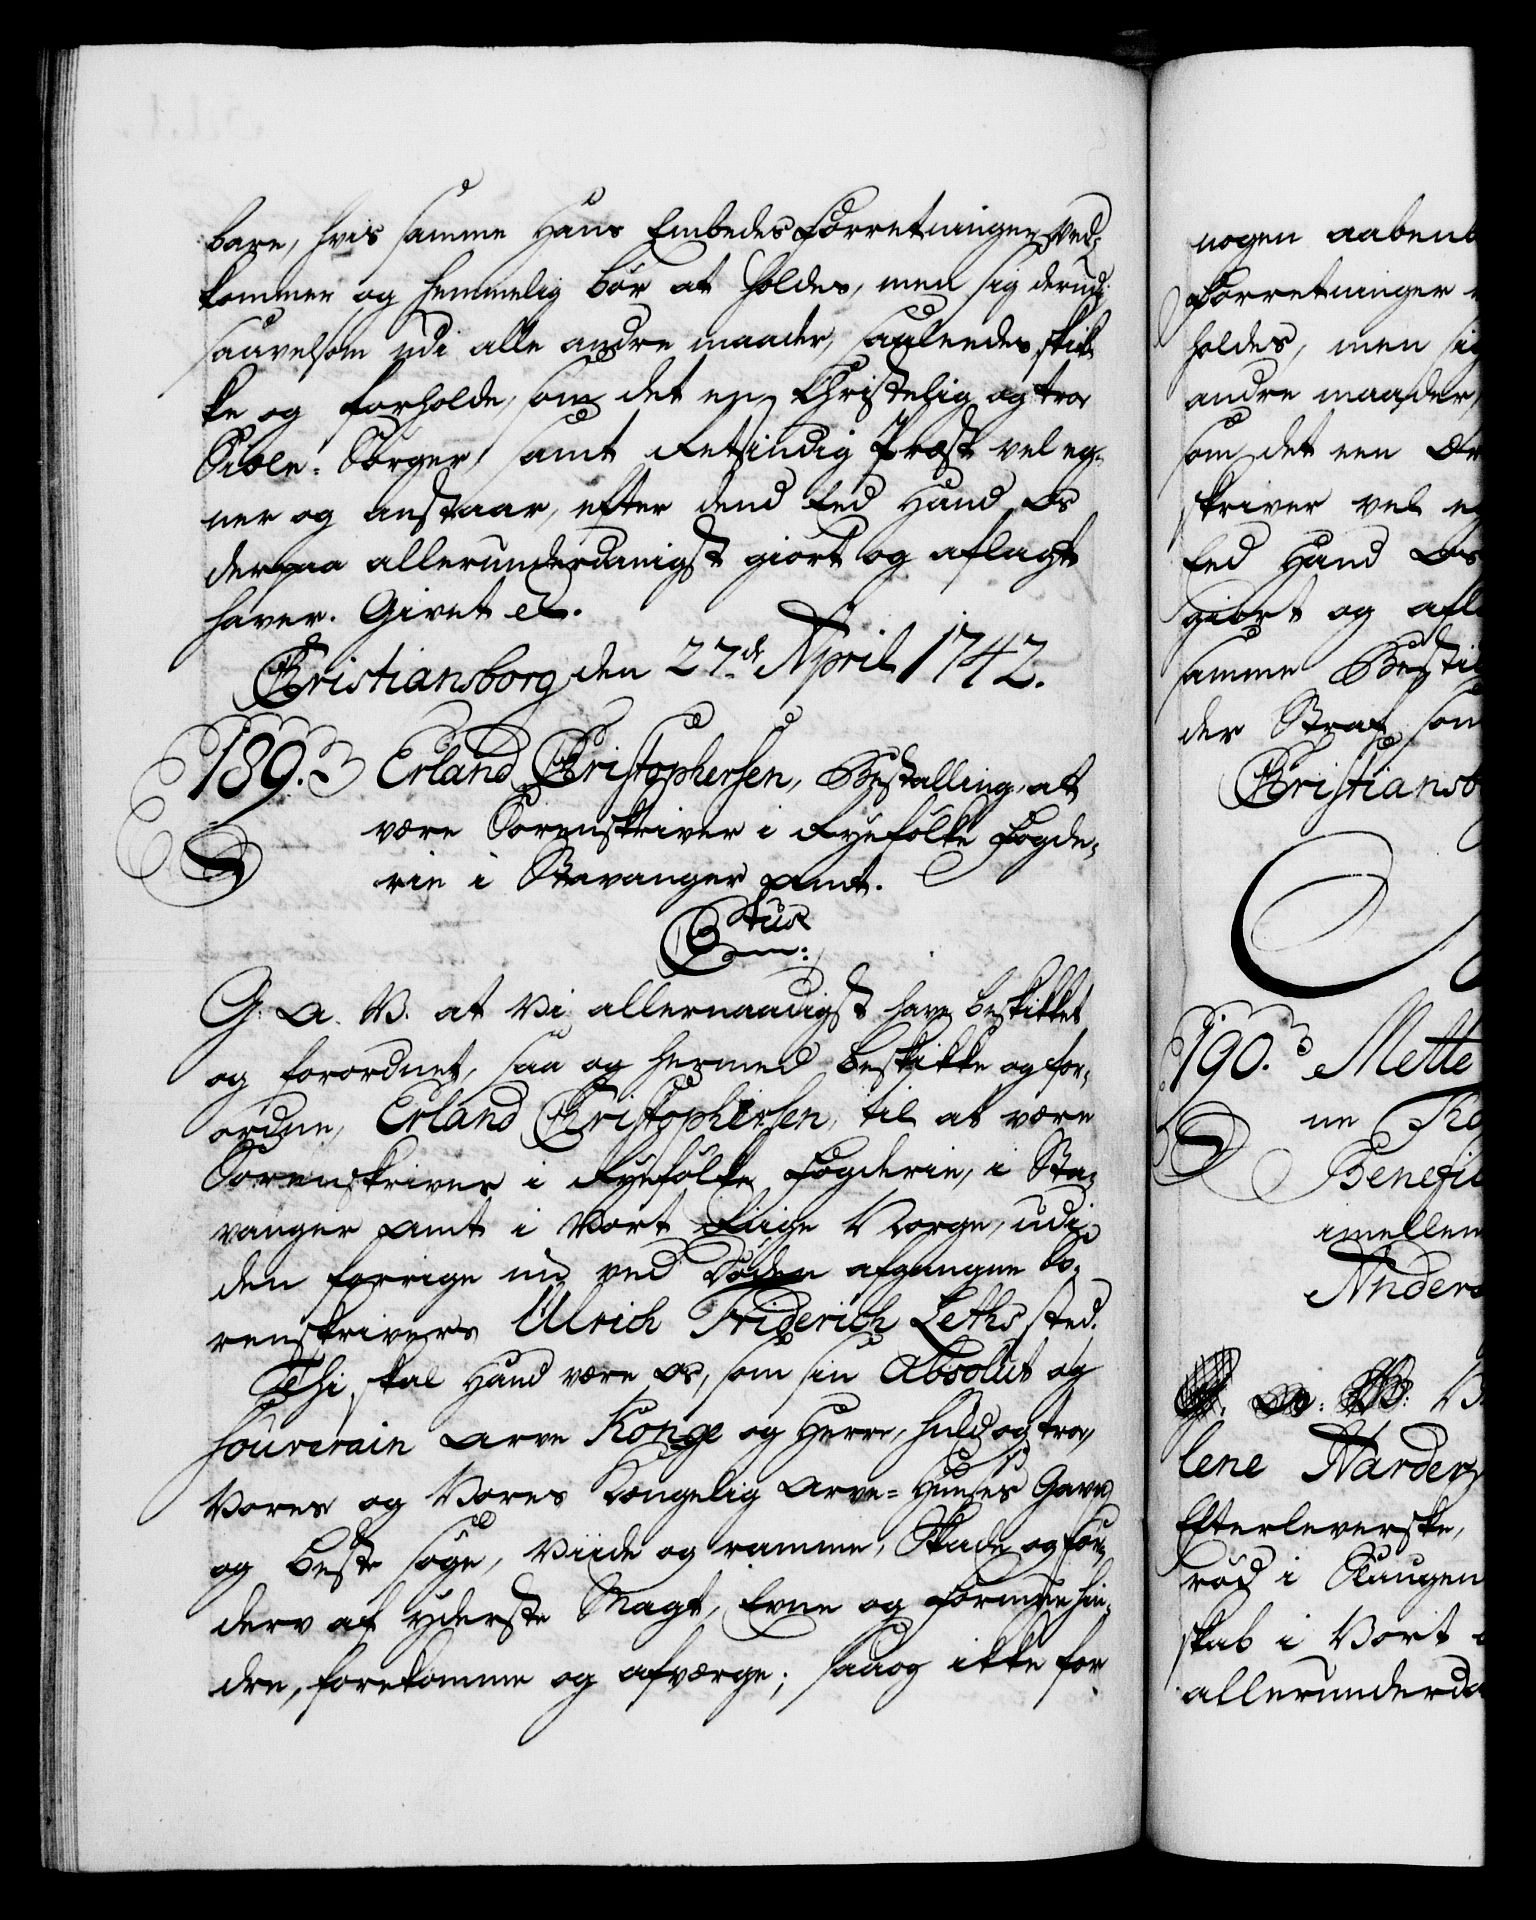 bare, hvis samme Hans Embedes Forretninger ved-
kommer og hemmelig bør at holdes, men sig derudi
saavelsom udi alle andre maader, saaledes skik-
ke og forholde, som det en Christelig og tro
Siæle-Sørger, samt Retsindig Præst vel eg-
ner og anstaar, efter dend Eed Hand Os
derpaa allerunderdanigst giort og aflagt
haver. Givet etc.
Christiansborg den 27de April 1742.
189. Erland Christophersen, Bestalling, at
være Sorenskriver i Ryefölke Fogde-
rie i Stavanger Amt.
G. A. V. at Vi allernaadigst have beskikket
og forordnet, saa og hermed beskikke og for-
ordne, Erland Christophersen, til at være
Sorenskriver i Ryefölke Fogderie, i Sta-
vanger Amt i Vort Riige Norge, udi
den forrige nu ved Døden afgangne So-
renskrivers Ulrich Friderich Leths sted.
Thi skal Hand være Os, som sin Absolut og
Souverain Arve Konge og Herre, huld og tro,
Vores og Vores Kongelig Arve-Huuses Gavn
og beste søge, Viide og ramme, Skade og For-
derv af yderste Magt, Evne og Formue hin-
dre, forekomme og afværge; saa og ikke for
nogen aabenb
Forretninger
holdes, men sig
andre maader,
som det een
skriver vel eg
Eed Hand Os
giort og afl
samme Bestil
der Straf som
Christiansb
190. Mette
ne
Benefic
imellem
Anders
lene Narder
Efterleverske,
rød i Slaugen
skab i Vort
allerunderda